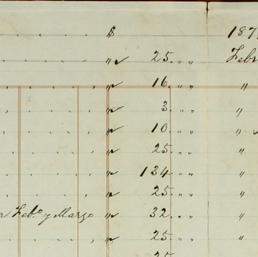 $ 187
" 25 " " Feb
" 16 " " "
" 3 " " "
" 10 " " "
" 25 " " "
" 134 " " "
" 25 " " "
Feb.º y Marzo " 32 " " "
" 25 " " "
25